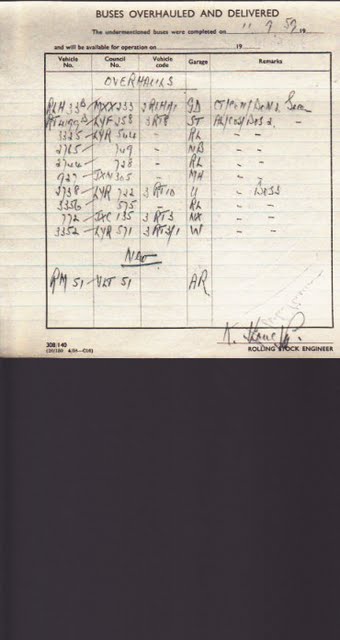 BUSES OVERHAULED AND DELIVERED
The undermentioned buses were completed on 11 7 59 19
and will be available for operation on 19
Vehicle No. Council No. Vehicle code Garage Remarks
OVERHAULS
RLH 33 MXX 233 2RLH1/1 GD
LYF 258 3RT8 ST
3335 LYR 544 RL " "
2765 749 NB " "
2744 728 RL " "
927 JXN 305 MH " "
2738 LYR 722 3 RT10 U
3356 575 RL " "
772 JXC 135 3 RT3 NX " "
3352 LYR 571 3 RT3/1 W " "
New
RM 51 VLT 51 AR
308/140
ROLLING STOCK ENGINEER